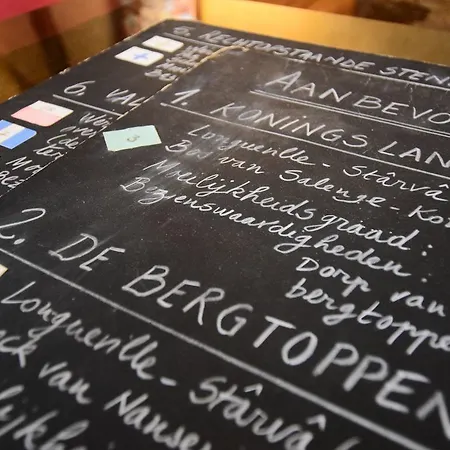 6. RECHTOPSTAANDE STEN
AANBEVO
1. KONINGSLAN
Longuerille - Stârvâ
Bos van Salenge - Ko
Moeilijkheidsgraad:
Bezienswaardigheden:
Dorp van
bergtoppe
6. VAL
2. DE BERGTOPPEN
Longuerille - Stârvâ
ck van Nansen
lijkheid
5